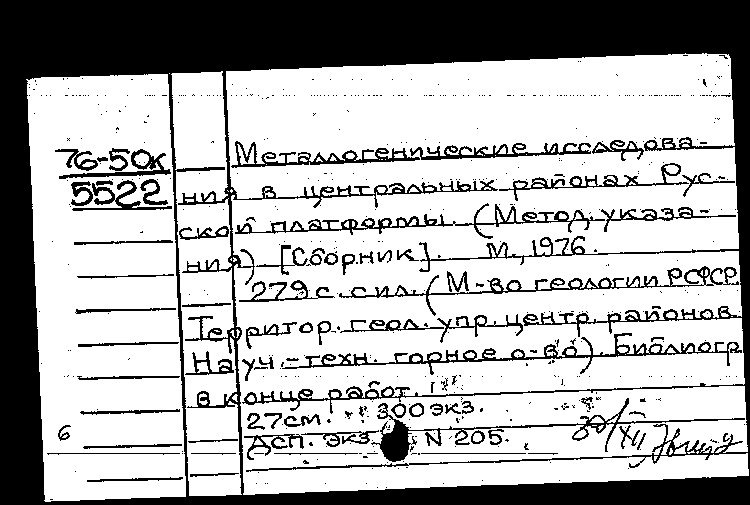 76-50к
5522
Металлогенические исследова-
ния в центральных районах Рус-
ской платформы. (Метод. указа-
ния) [Сборник]. М., 1976.
279 с. с ил. (М-во геологии РСФСР.
Территор. геол. упр. центр. районов.
Науч.-техн. горное о-во). Библиогр.
в конце работ.
27 см. 300 экз.
ДСП. экз. N 205.
6
30/XII